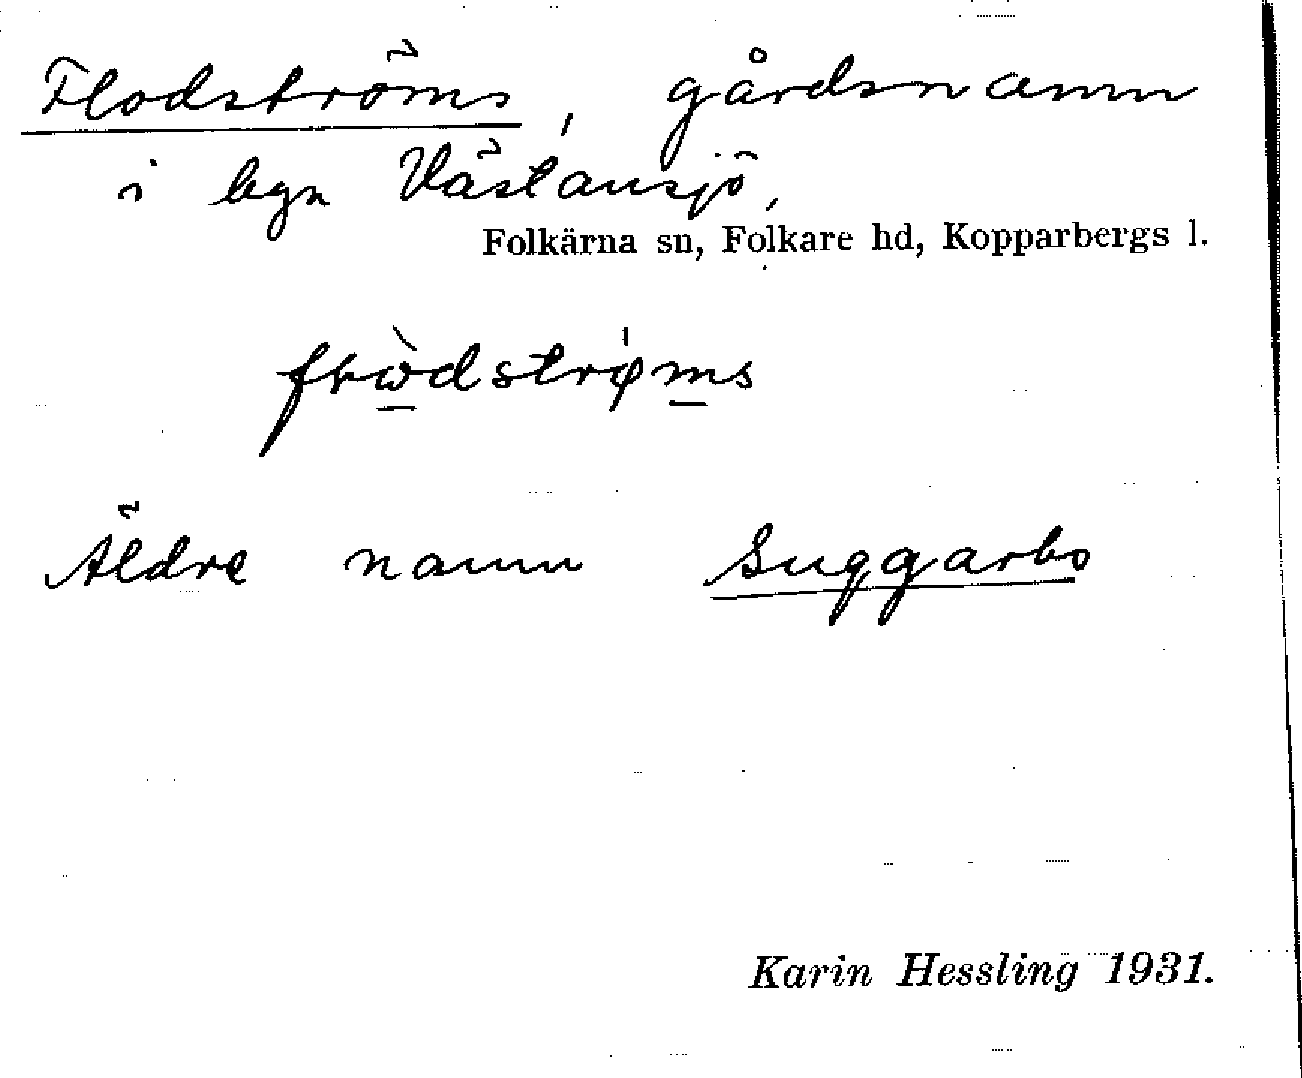 Flodströms, gårdsnamn
i byn Västansjö,
Folkärna sn, Folkare hd, Kopparbergs l.
Äldre namn Suggarbo
Karin Hessling 1931.